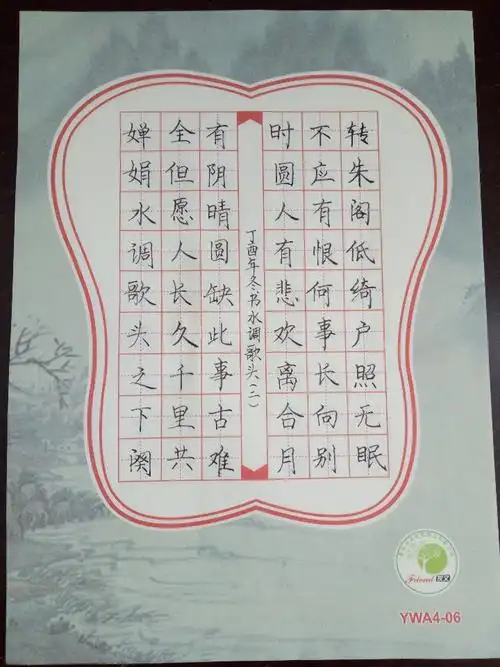 转朱阁低绮户照无眠
不应有恨何事长向别
时圆人有悲欢离合月
丁酉年冬书水调歌头(二)
有阴晴圆缺此事古难
全但愿人长久千里共
婵娟水调歌头之下阕
Friend 友文
YWA4-06